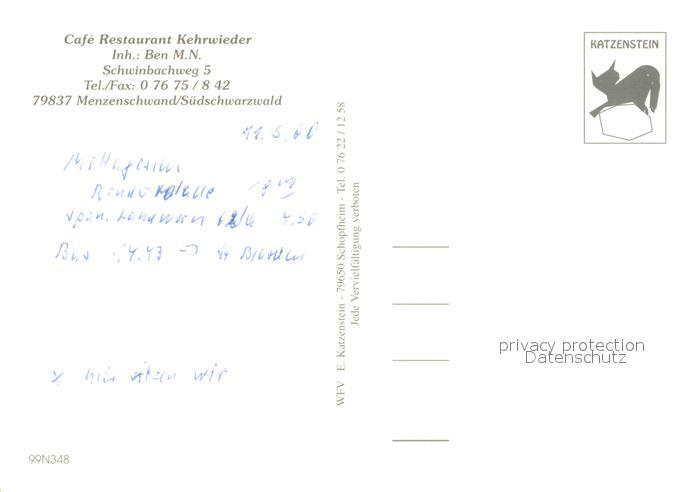 Café Restaurant Kehrwieder
Inh.: Ben M.N.
Schwinbachweg 5
Tel./Fax: 0 76 75 / 8 42
79837 Menzenschwand/Südschwarzwald
KATZENSTEIN
11.5.00
Mittagessen
4.50
Bus 14.43 →
x hier sitzen wir
WFV E. Katzenstein - 79650 Schopfheim - Tel. 0 76 22 / 12 58
Jede Vervielfältigung verboten
privacy protection
Datenschutz
99N348